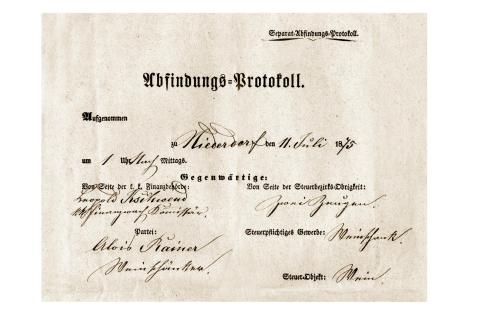 Separat-Abfindungs-Protokoll.
Abfindungs-Protokoll.
Aufgenommen
zu Niederdorf den 11. Juli 1875
um 1 Uhr Nach Mittags.
Gegenwärtige:
Von Seite der k. k. Finanzbehörde: Von Seite der Steuerbezirks-Obrigkeit:
Leopold
Zwei Zeugen.
Finanzwach Komissär.
Partei: Steuerpflichtiges Gewerbe: Weinschank.
Alois Rainer
Weinschänker.
Steuer-Objekt: Wein.